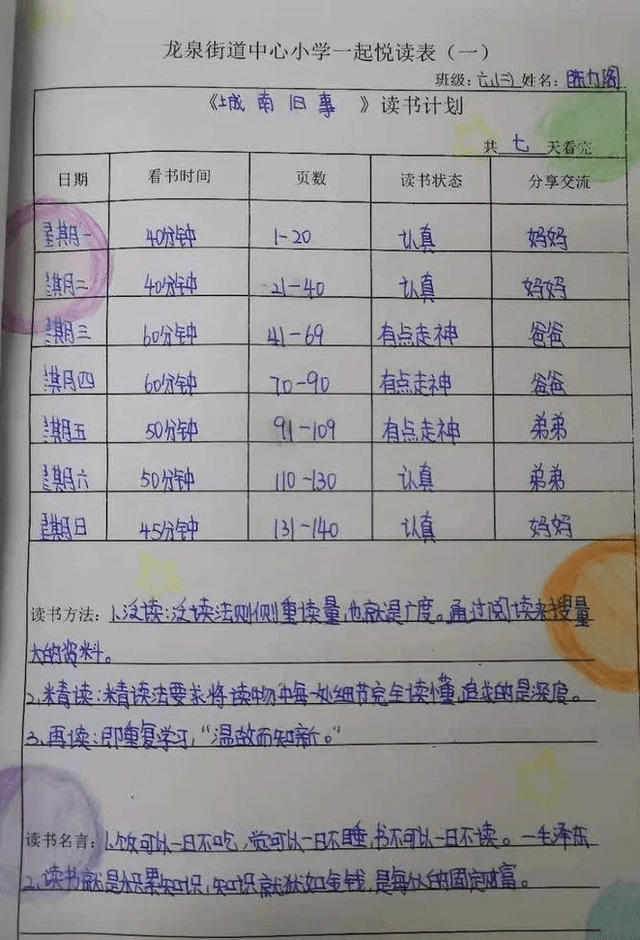 龙泉街道中心小学一起悦读表（一）
班级：六(三) 姓名：
《城南旧事》读书计划
共 七 天看完
日期 看书时间 页数 读书状态 分享交流
星期一 40分钟 1-20 认真 妈妈
星期二 40分钟 21-40 认真 妈妈
星期三 60分钟 41-69 有点走神 爸爸
星期四 60分钟 70-90 有点走神 爸爸
星期五 50分钟 91-109 有点走神 弟弟
星期六 50分钟 110-130 认真 弟弟
星期日 45分钟 131-140 认真 妈妈
读书方法：1.泛读：泛读法则侧重读量，也就是广度。通过阅读来搜量
大的资料。
2.精读：精读法要求将读物中每一处细节完全读懂，追求的是深度。
3.再读：即重复学习，“温故而知新。”
读书名言：1.饭可以一日不吃，觉可以一日不睡，书不可以一日不读。—毛泽东
2.读书就是积累知识，知识就犹如金钱，是每人的固定财富。